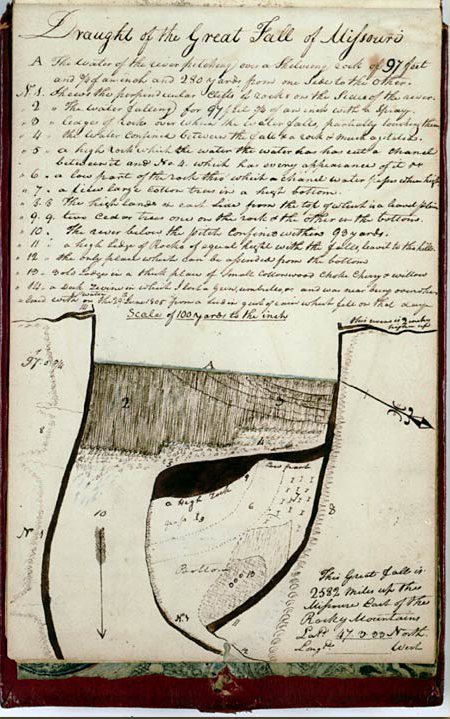 Draught of the Great Fall of Missouri
A The water of the river pitching over a Shelveing rock of 97 feet
and ¾ of an inch and 280 yards from one Side to the other.
No 1. Shews the perpendicular Clifts of rocks on the Sides of the river.
2 " The Water falling for 97 feet ¾ of an inch with a Spray
" 3 " ledges of Rocks over which the water falls, partially breaking them
" 4 " the Water Confined between the fall & a rock & much agitated
" 5 " a high rock which the water has cut a chanel
between it and No. 4. which has every appearance of it &c
" 6 " a low part of the rock thro which a chanel water passes when high
" 7 " a fiew large Cotton trees in a high bottom.
" 8. 8 The high lands on each Side from the top of which is a leavel plain
" 9. 9. two Cedar trees one on the rock & the other in the bottom.
" 10. The river below the pitch Confined within 93 yards.
" 11 " a high ledge of Rocks of equal hight with the falls leavil to the hills.
" 12 " the only place which can be assended from the bottom
" 13 " Lodge in a thick place of Small Cottonwood Choke Chery & willow
" 14 " a Deep revein in which I lost a Gun, umbrella &c and was near being
water on the 29 June 1805 from a hard gust of rain which fell on that day
Scale of 100 yards to the inch
14
this revein is ¼ mile
higher up
97. 0. ¾
A
2
3
4
5
8
9
a High rock
6
10
Bottom
13
8
11
No 1
12
This Great fall is
2582 miles up the
Missouri East of the
Rocky Mountains
Latd. 47. 3. 33 North.
Longde. West